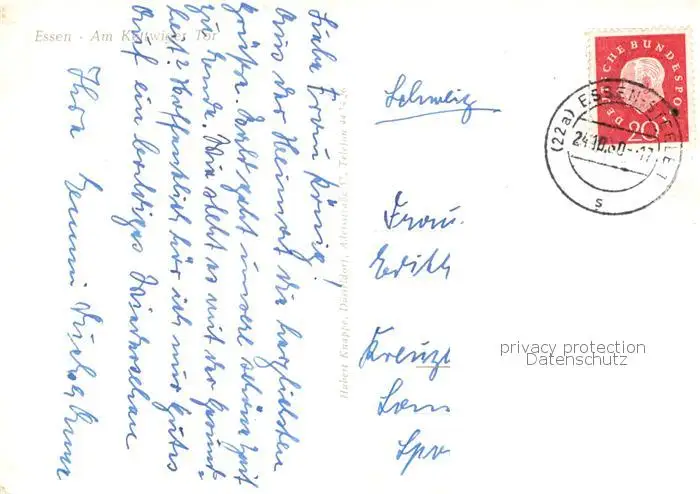 Essen - Am Kettwiger Tor
Liebe Frau König!
Aus der Heimat die herzlichsten
Grüße. Bald geht unsere schöne Zeit
zu Ende. Wie steht es mit der Gesund-
heit? Hoffentlich hör ich nur Gutes
Auf ein baldiges Wiedersehen
Ihre Emmi
Hubert Knappe, Düsseldorf, Telefon
Schweiz
Frau
Edith
Kreuzl
(22a) ESSEN-STEELE 1
24.10.60-17
s
DEUTSCHE BUNDESPOST
20
privacy protection
Datenschutz